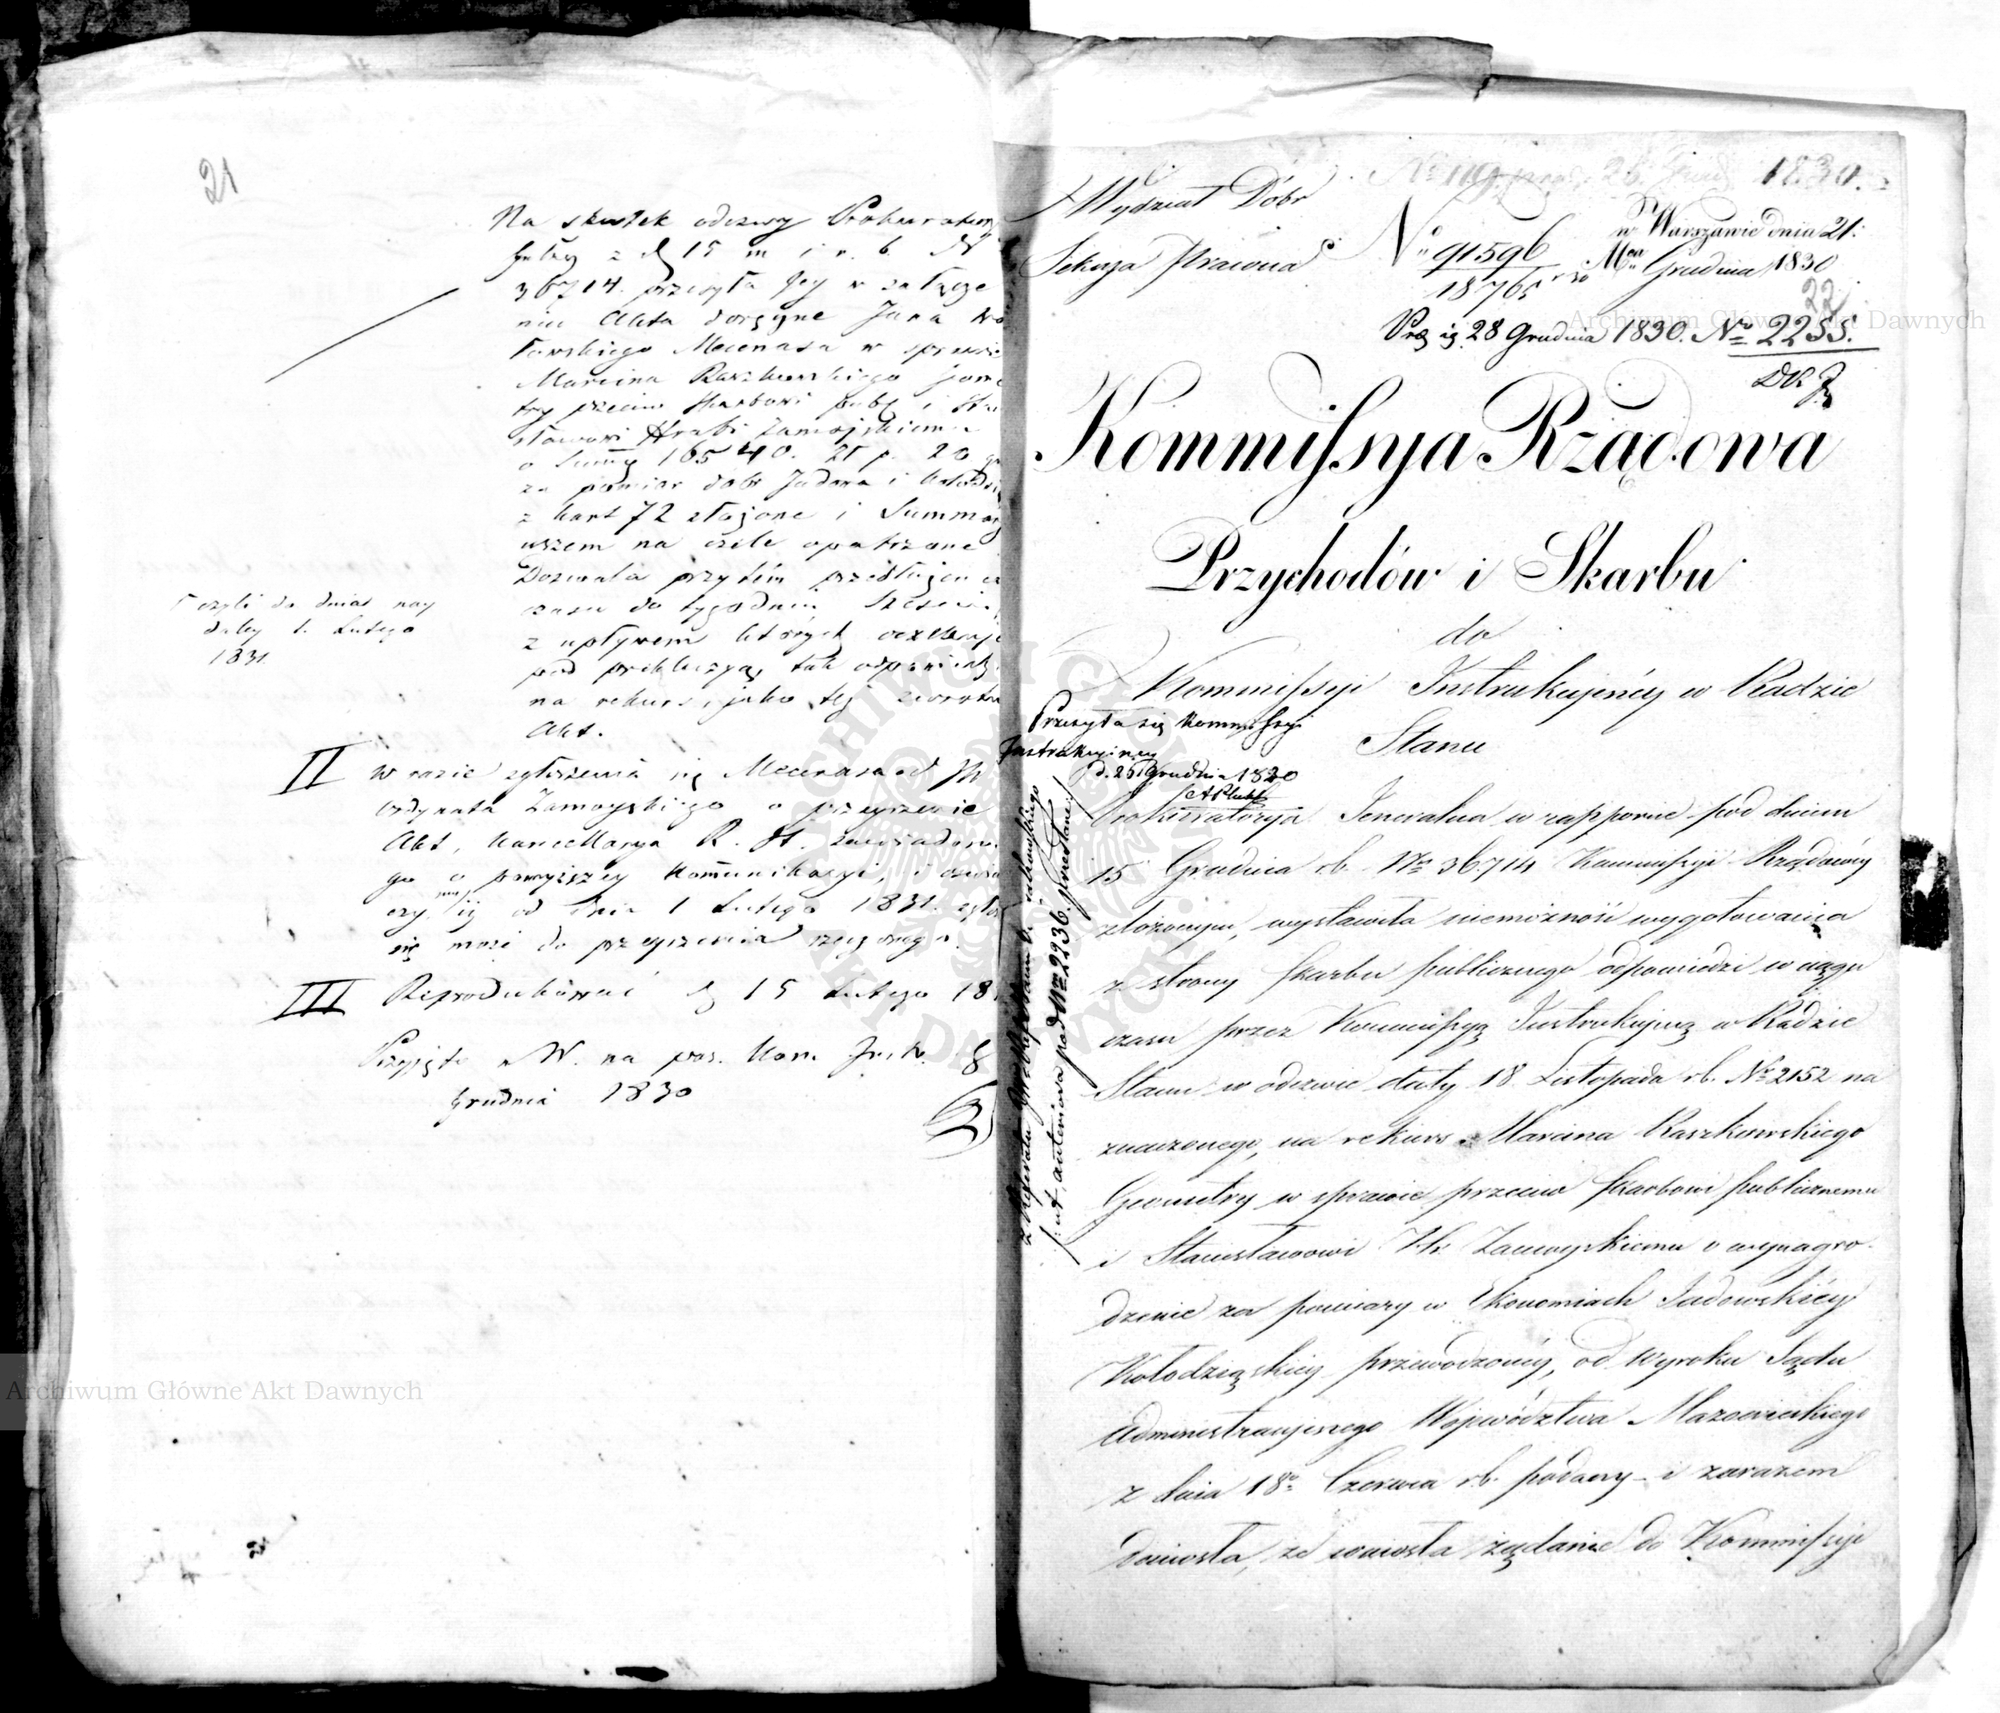 21
Na skutek odezwy Prokuratoryi
z d 15 m i r. b. N
36714. przesyła Jey w załącze
niu Akta Jana
Mecenasa w sprawie
Marcina Raszkowskiego Jeome
try przeciw Skarbowi publ i Sta
sławowi Hrabi Zamoyskiemu
o Summę 16540. Zł p. 20 gr
za pomiar dóbr Jadowa i
z kart 72 złożone i Summary
uszem na czele opatrzone
Dozwala przytém przedłużenia
czasu do tygodni Sześciu
czyli do dnia nay
daley 1. Lutego
1831.
z upływem których oczekuje
pod prekluzyą, tak odpowiedzi
na rekurs, jako też zwrotu
Akt.
II w razie zgłoszenia się Mecenasa od JW
Ordynata Zamoyskiego o przeyrzenie
Akt, Kancellarya R. St. zawiadomi
go o powyższey Kommunikacyi, i
od dnia 1 Lutego 1831. zgłosić
się może do przeyrzenia rzeczonego.
III Reprodukować d 15 Lutego 18
Przyjęto w W. na pos. Kom. Instr. d 8
Grudnia 1830
Wydział Dóbr
Sekcya Prawna
1830.
N° 91596
18765
w Warszawie dnia 21:
Mca Grudnia 1830
22
28 Grudnia 1830. No 2255.
Kommissya Rządowa
Przychodów i Skarbu
do
Kommissyi Instrukcyjnéy w Radzie
Stanu
Przesyła się Kommissyi
Instrukcyiney
d. 26 Grudnia 1830
Prokuratorya Jeneralna w rapporcie pod dniem
15 Grudnia rb. No 36.714 Kommissyi Rządowéy
złożonym, wystawiła niemożność wygotowania
z strony Skarbu publicznego odpowiedzi w ciągu
czasu przez Kommissyą Instrukcyiną w Radzie
Stanu w odezwie daty 18 Listopada rb. No 2152 na
znaczonego, na rekurs Marcina Raszkowskiego
Geometry w sprawie przeciw Skarbowi publicznemu
i Stanisławowi Hr. Zamoyskiemu o wynagro
dzenie za pomiary w Ekonomiach Jadowskiéy
Kołodziąskiéy przewodzonéy, od Wyroku Sądu
Administracyjnego Województwa Mazowieckiego
z dnia 18° Czerwca rb. podany i zarazem
doniosła, że wniosła żądanie do Kommissyi
pod No 2236. przesłane:
Archiwum Główne Akt Dawnych
Archiwum Główne Akt Dawnych